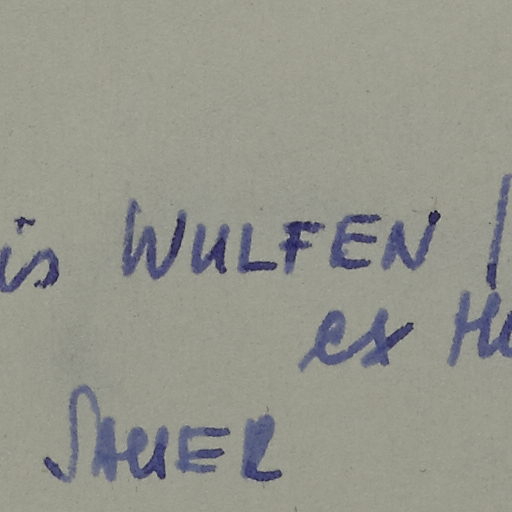 is WULFEN
ex
SAUER